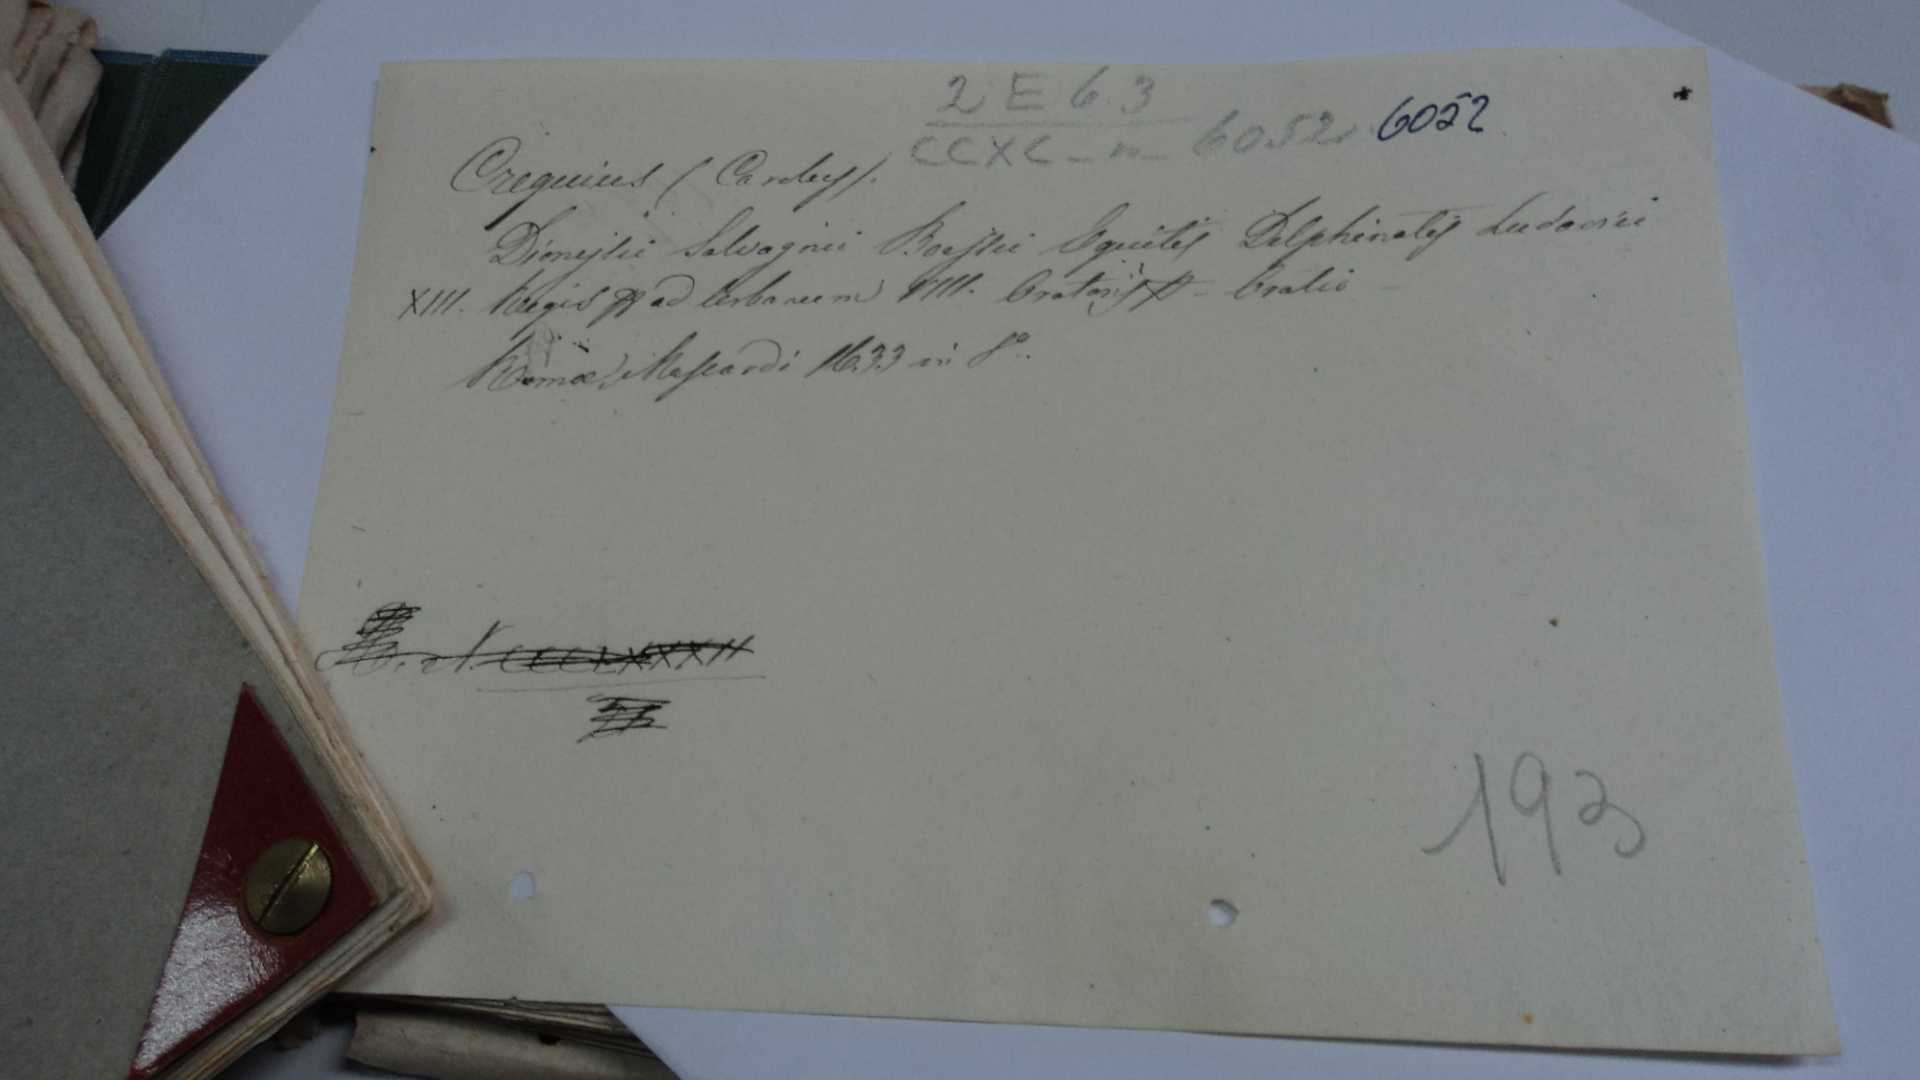 2 E 6.3
CCXC - n - 6052 6052
Crequius (Carolus).
Dionysii Salvagnii Boessii Equitis Delphinatis Ludovici
XIII. Regis ad Urbanum VIII. Oratoris - Oratio -
Romae, Mascardi 1633 in 8°.
CCCLXXXII
193